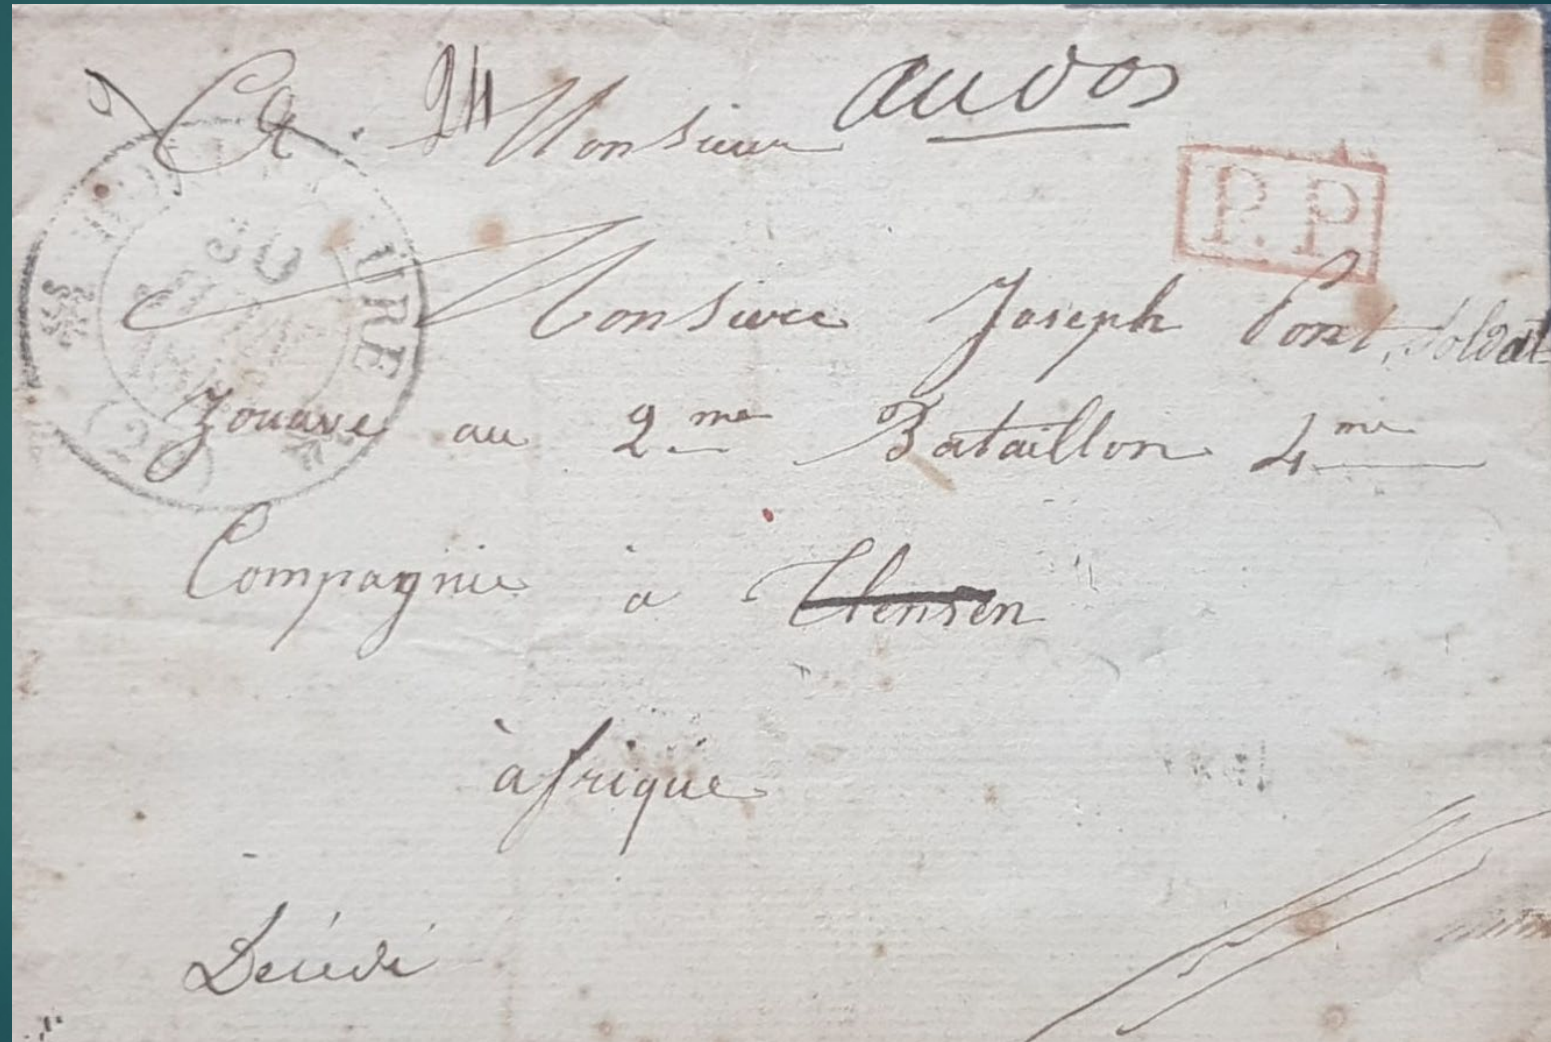 au dos
Monsieur
P.P.
Monsieur Joseph Pont, Soldat
Zouave au 2me Bataillon 4me
Compagnie à Tlensen
afrique
Décédé
30
URE
(20)